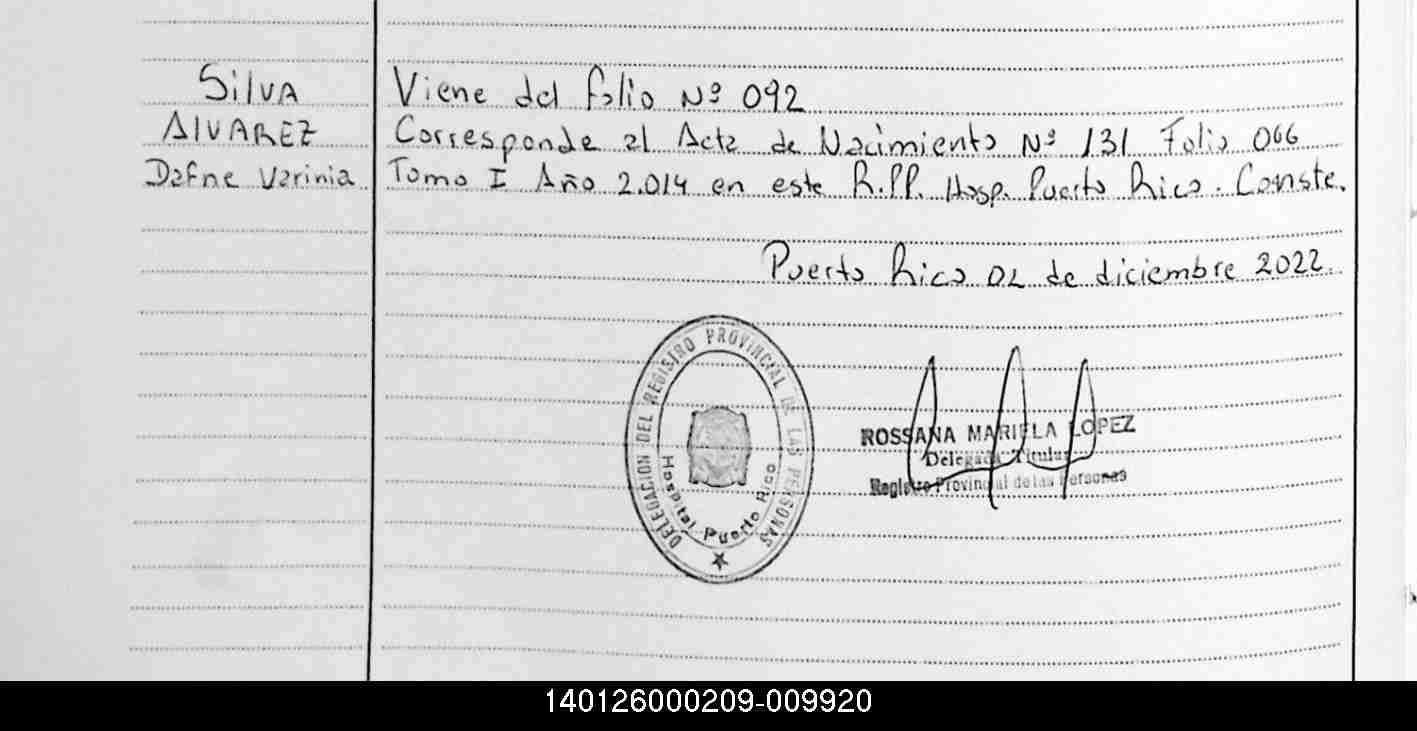 Silva
Alvarez
Dafne Varinia
Viene del folio Nº 092
Corresponde al Acta de Nacimiento Nº 131 Folio 066
Tomo I Año 2.014 en este R.PP. Hosp. Puerto Rico. Conste.
Puerto Rico 02 de diciembre 2022.
DELEGACION DEL REGISTRO PROVINCIAL DE LAS PERSONAS
Hospital Puerto Rico
ROSSANA MARIELA LOPEZ
Delegada Titular
Registro Provincial de las Personas
140126000209-009920